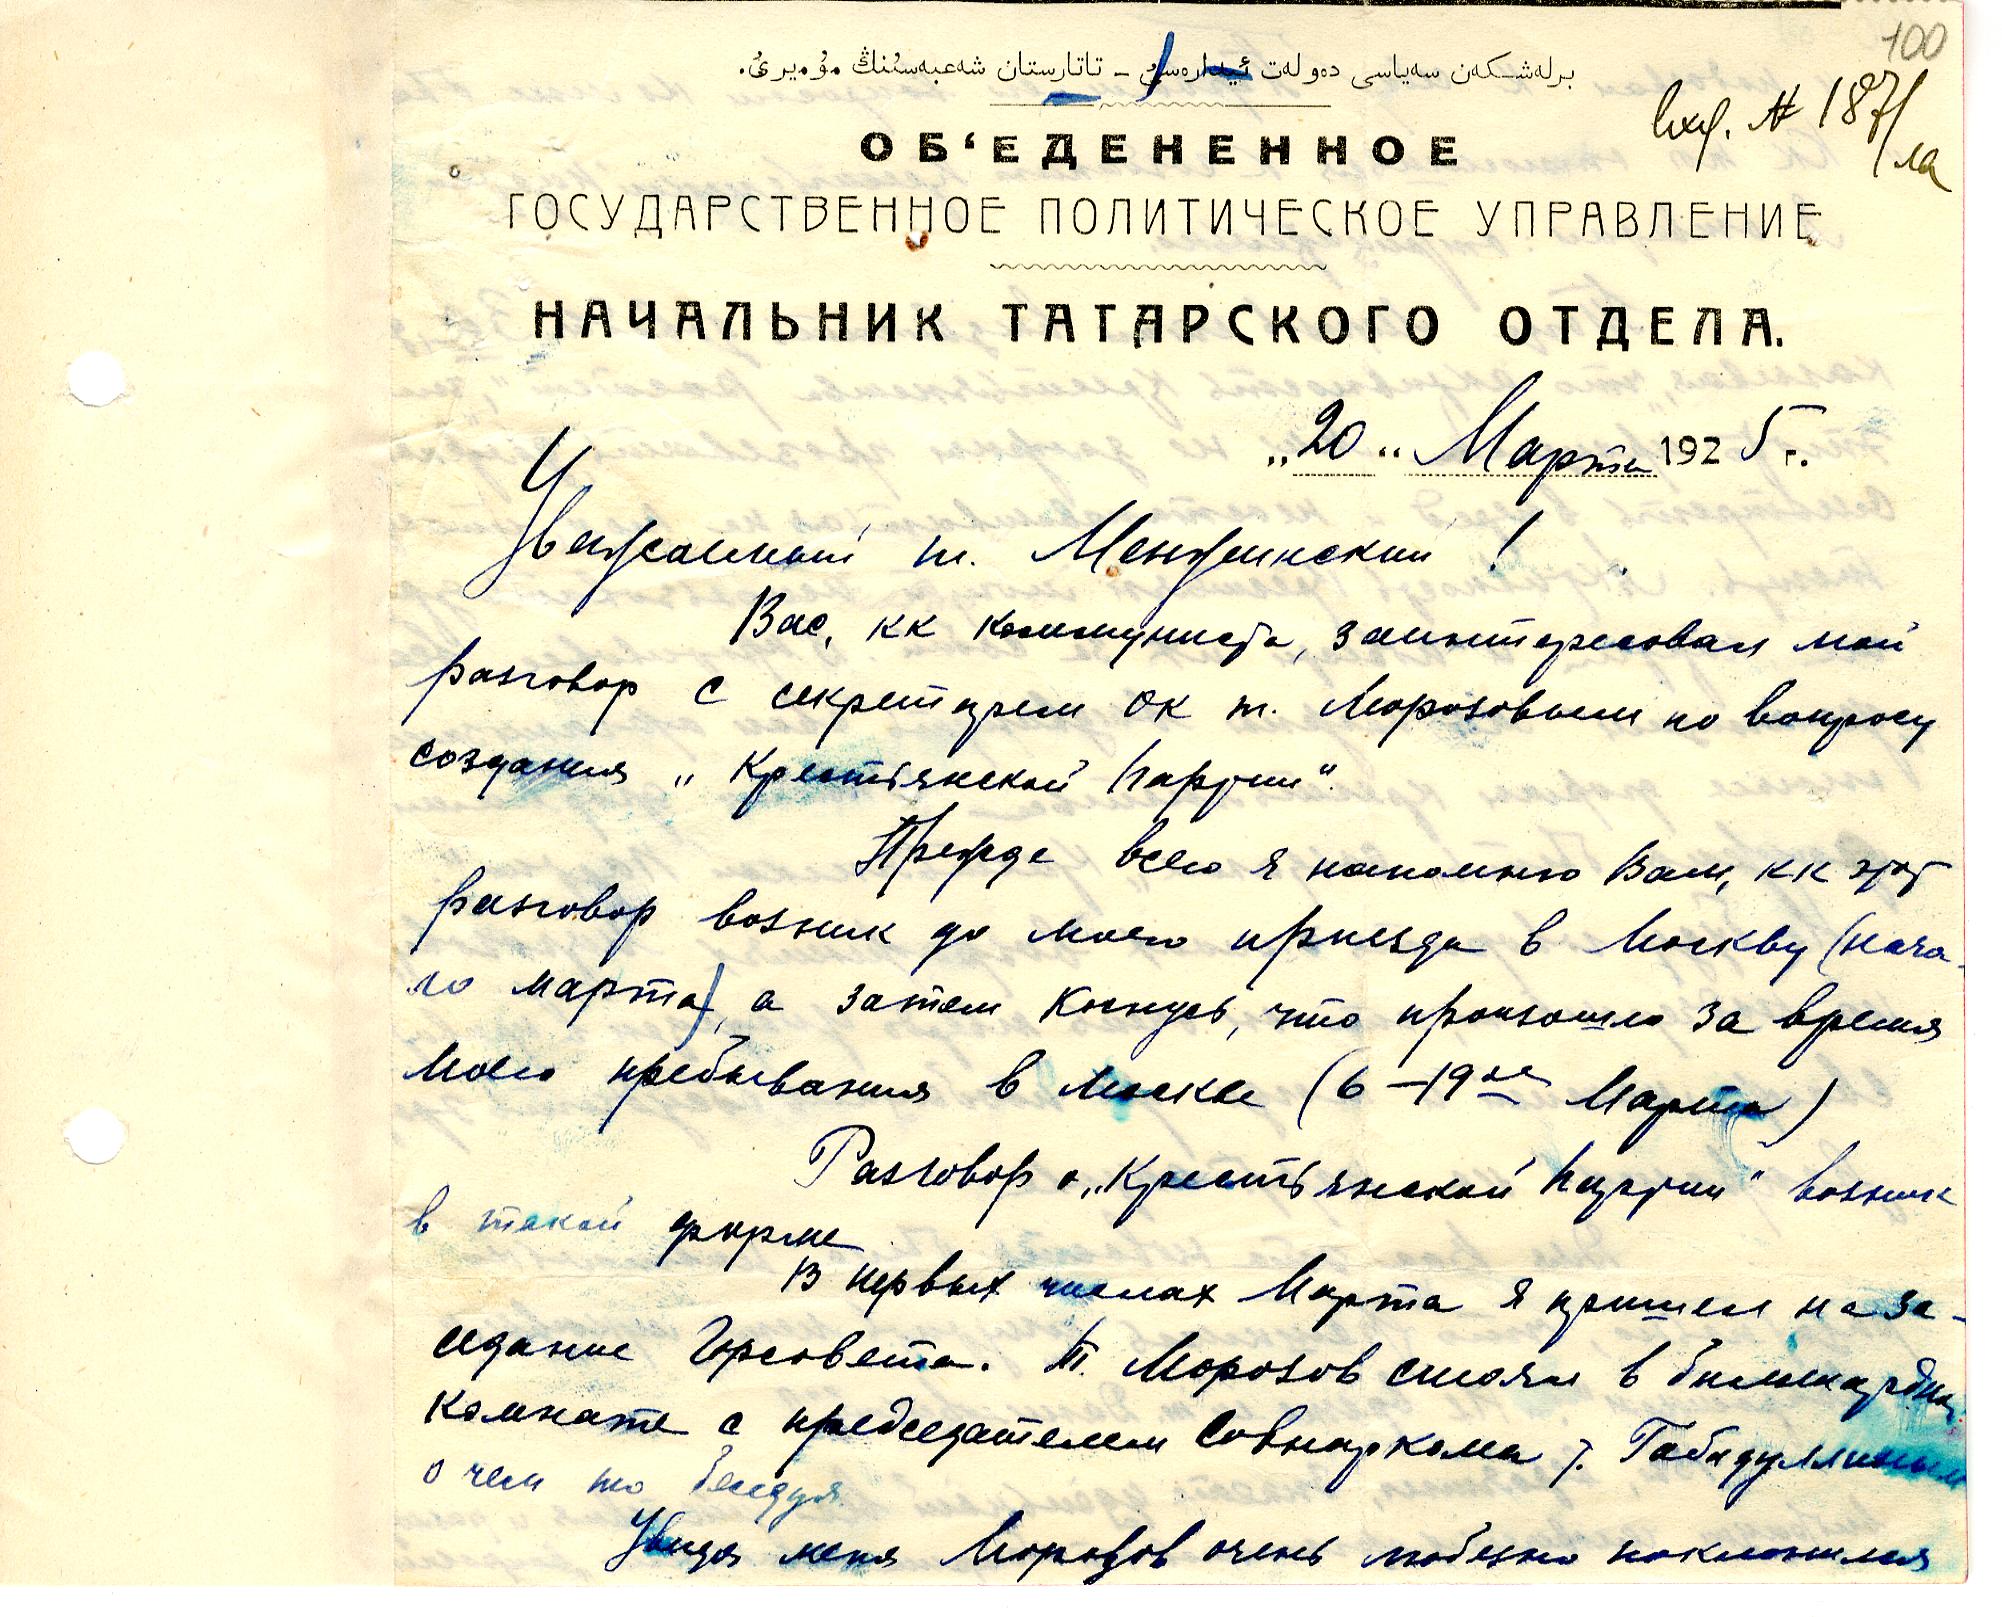 100
вхд. № 187/
برلەشكەن سەياسى دەولەت ئيدارەسى – تاتارستان شەعبەسىنىڭ مۇديرى.
ОБ‘ЕДЕНЕННОЕ
ГОСУДАРСТВЕННОЕ ПОЛИТИЧЕСКОЕ УПРАВЛЕНИЕ
НАЧАЛЬНИК ТАТАРСКОГО ОТДЕЛА.
„20„ Марта 1925 г.
Уважаемый т. Менжинский!
Вас, кк коммуниста, заинтересовал мой
разговор с секретарем ОК т. Морозовым по вопросу
создания „Крестьянской Партии“.
Прежде всего я напомню Вам, кк этот
разговор возник до моего приезда в Москву (нача-
ло марта), а затем коснусь, что произошло за время
моего пребывания в Москве (6–19ое Марта)
Разговор о „Крестьянской Партии“ возник
в такой форме
В первых числах Марта я пришел на за-
седание Горсовета. т. Морозов стоял в бильярдной
комнате с председателем Совнаркома т. Габидуллиным
о чем то беседуя.
Увидя меня Морозов очень любезно поклонился